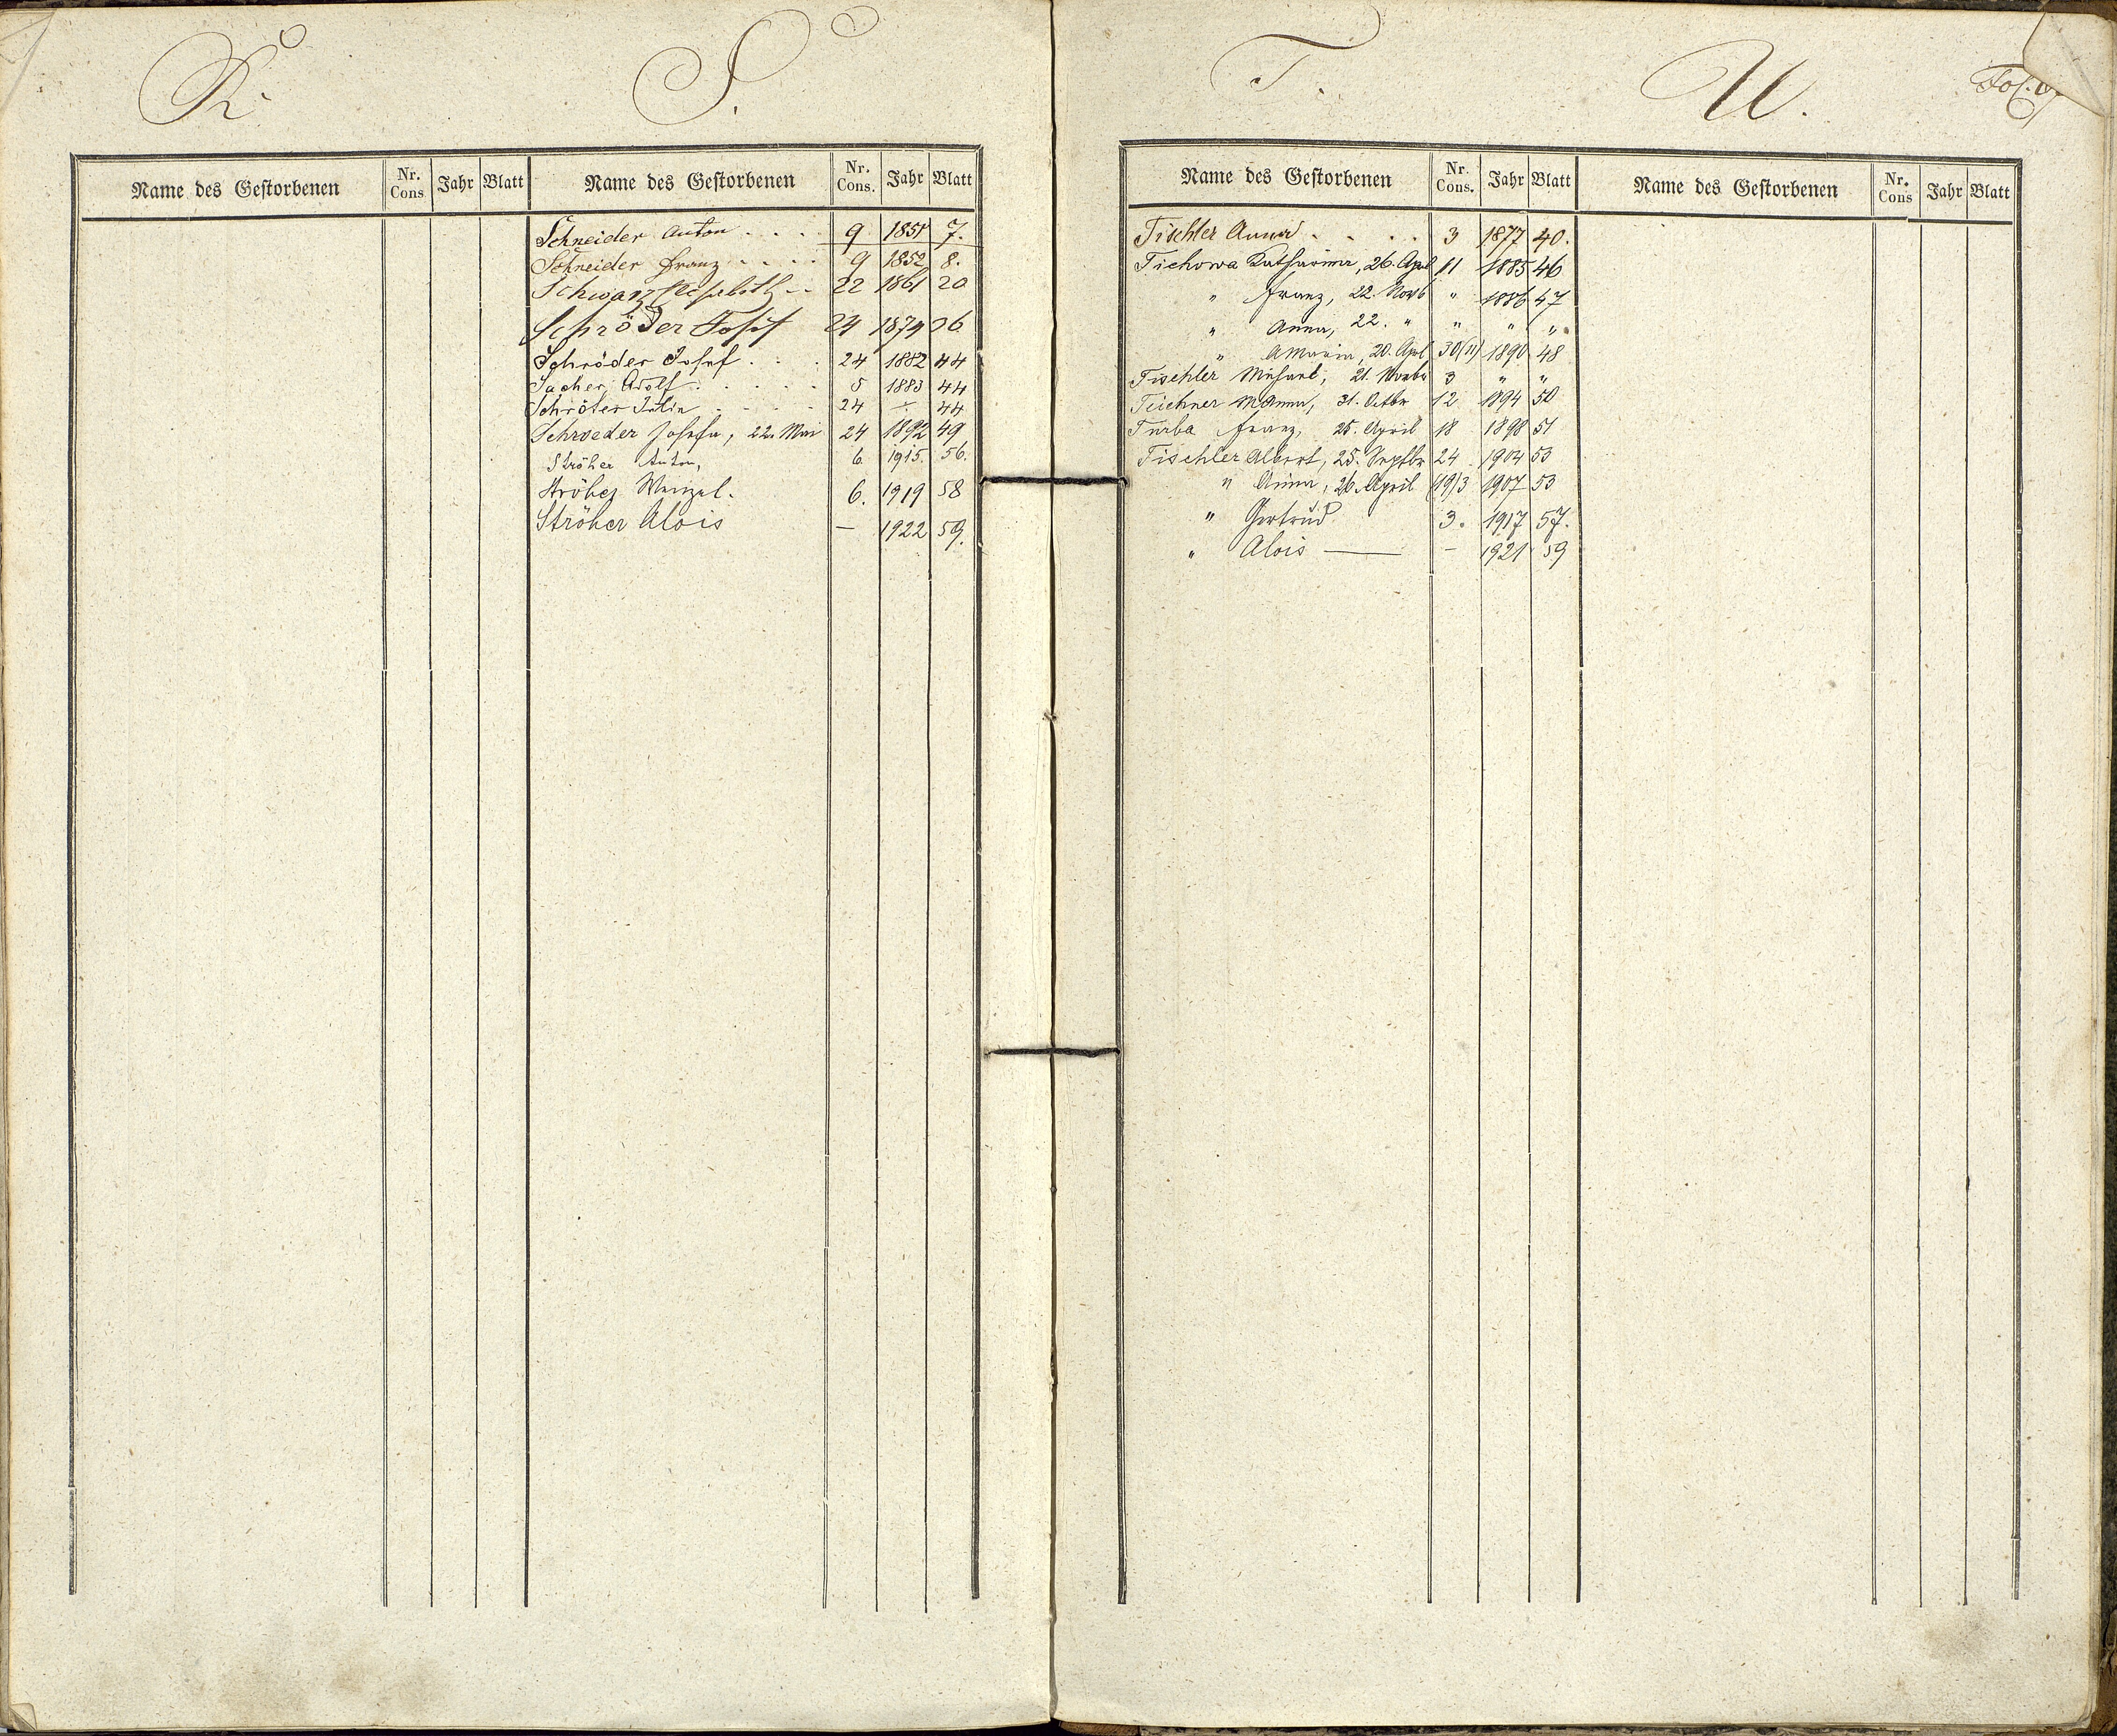 R. S.
Name des Gestorbenen Nr. Cons Jahr Blatt Name des Gestorbenen Nr. Cons. Jahr Blatt
Schneider Anton . . . . 9 1851 7.
Schneider Franz . . . . 9 1852 8.
Schwarz Elisabeth . . 22 1861 20
Schröder Josef 24 1879
Schröder Josef . . . 24 1882 44
Sacher Adolf . . . . . 5 1883 44
Schröter Julie . . . . 24 44
Schroeder Josefa, 22. Mai 24 1892 49
Ströher Anton, 6. 1915. 56.
Ströher Wenzel. 6. 1919 58
Ströher Alois — 1922 59.
T. U. Fol.
Name des Gestorbenen Nr. Cons. Jahr Blatt Name des Gestorbenen Nr. Cons Jahr Blatt
Tischler Anna . . . . 3 1877 40.
Tichowa Katharina, 26. April 11 1885 46
" Franz, 22. Novb " 1886 47
" Anna, 22. " " " "
" AMaria, 20. Apl 30(11) 1890 48
Tischler 21. Novbr 3 " "
Teichner MAnna, 31. Octbr 12 1894 50
Turba Franz, 25. April 18 1898 51
Tischler Albert, 25. Septbr 24 1904 53
" Anna, 26. April (19)3 1907 53
" Gertrud 3. 1917 57.
" Alois — – 1921 59